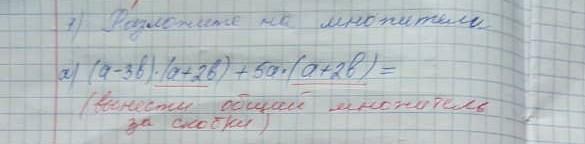 7) Разложите на множители
а) (а-3в)·(а+2в)+5а·(а+2в)=
(вынести общий множитель
за скобки)